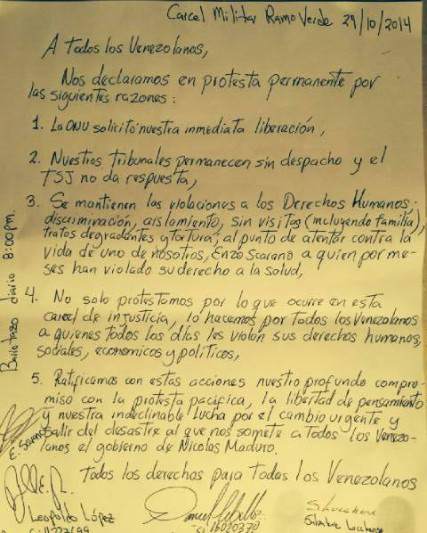 Carcel Militar Ramo Verde 29/10/2014
A Todos los Venezolanos,
Nos declaramos en protesta permanente por
las siguientes razones:
1. La ONU solicitó nuestra inmediata liberación,
2. Nuestros Tribunales permanecen sin despacho y el
TSJ no da respuesta,
3. Se mantienen las violaciones a los Derechos Humanos;
discriminación, aislamiento, sin visitas (incluyendo familia),
tratos degradantes y tortura; al punto de atentar contra la
vida de uno de nosotros, Enzo Scarano a quien por me-
ses han violado su derecho a la salud,
4. No solo protestamos por lo que ocurre en esta
carcel de injusticia, lo hacemos por Todos los Venezolanos
a quienes todos los días les violan sus derechos humanos,
sociales, economicos y políticos,
5. Ratificamos con estas acciones nuestro profundo compro-
miso con la protesta pacifica, la libertad de pensamiento
y nuestra indeclinable lucha por el cambio urgente y
salir del desastre al que nos somete a Todos los Venezo-
lanos el gobierno de Nicolas Maduro.
Todos los derechos para Todos los Venezolanos
diario 8:00pm.
Leopoldo López